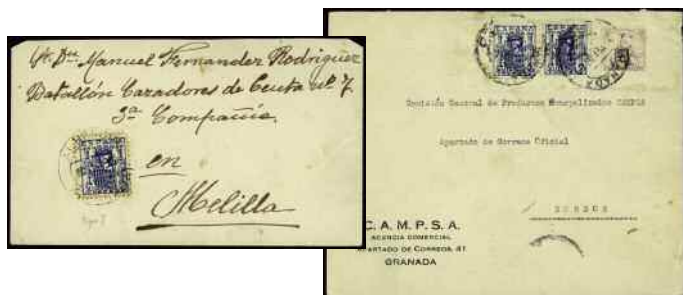 Sr. Dn. Manuel Fernandez Rodriguez
Batallón Cazadores de Ceuta nº 7
3ª Compañia
en
Melilla
Comisión Central de Productos Monopolizados CAMPSA
Apartado de Correos Oficial
BURGOS
C. A. M. P. S. A.
AGENCIA COMERCIAL
APARTADO DE CORREOS, 41
GRANADA